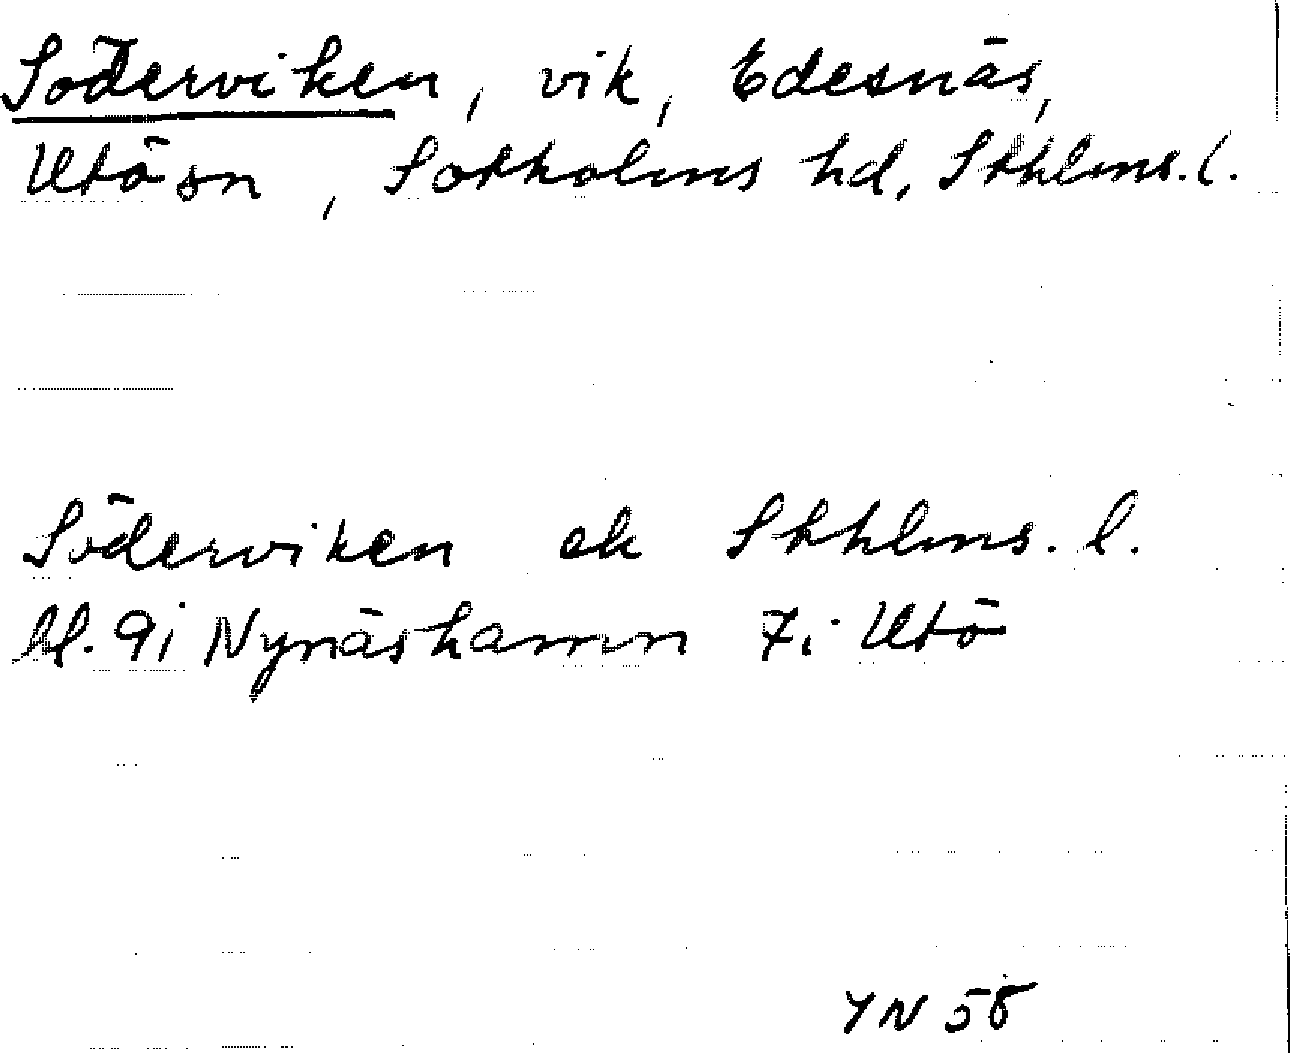 Söderviken, vik, Edesnäs,
Utö sn, Sotholms hd, Sthlms. l.
Söderviken ek Sthlms. l.
bl. 9i Nynäshamn 7i Utö
YN 58